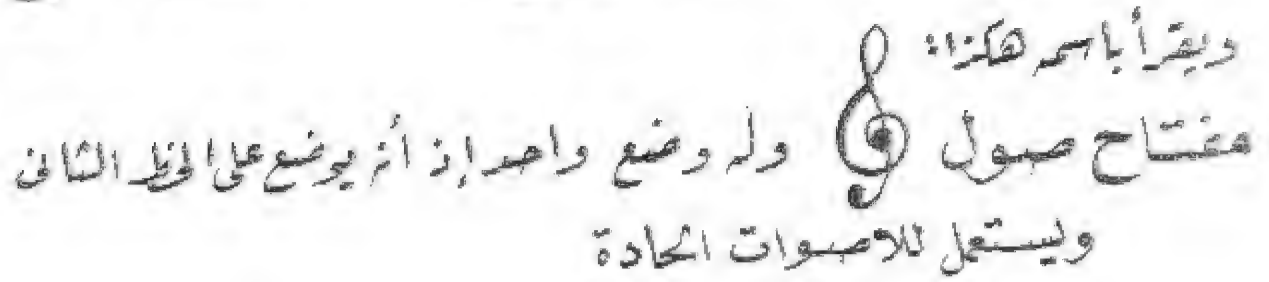 ويقرأ باسم هكذا:
مفتاح صول وله وضع واحد إذ أنه يوضع على الخط الثاني
ويستعمل للاصوات الحادة